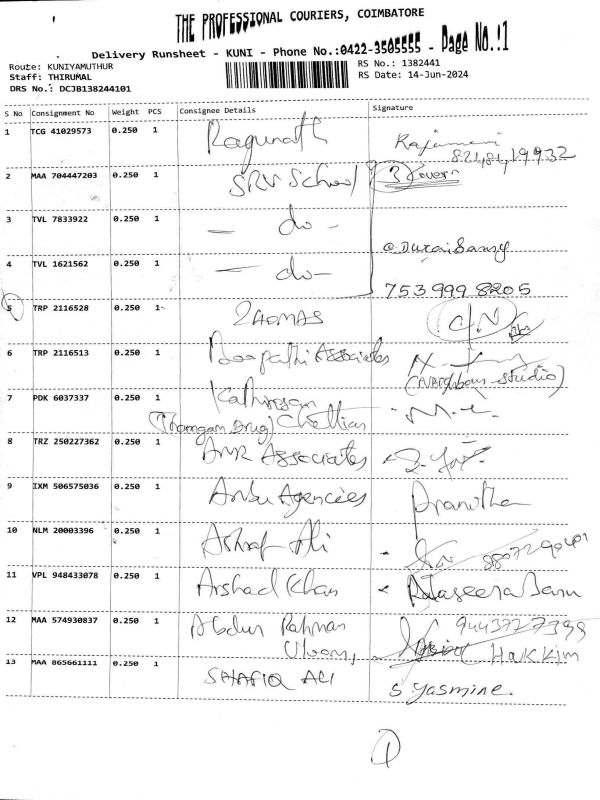 THE PROFESSIONAL COURIERS, COIMBATORE
Delivery Runsheet - KUNI - Phone No.:0422-3505555 - Page No.:1
Route: KUNIYAMUTHUR
Staff: THIRUMAL
DRS No.: DCJB138244101
RS No.: 1382441
RS Date: 14-Jun-2024
S No Consignment No Weight PCS Consignee Details Signature
1 TCG 41029573 0.250 1 Ragunath
2 MAA 704447203 0.250 1 SRV School 3 Covern
3 TVL 7833922 0.250 1 - do - @DuraiSamy
4 TVL 1621562 0.250 1 - do - 753 999 8205
5 TRP 2116528 0.250 1 C/N
6 TRP 2116513 0.250 1 Boopathi Associates
(Neighbours studio)
7 PDK 6037337 0.250 1 Kathiresan
Chettiar
8 TRZ 250227362 0.250 1 AMR Associates
9 IXM 506575036 0.250 1 Anbu Agencies Pranitha
10 NLM 20003396 0.250 1 Ashraf Ali
11 VPL 948433078 0.250 1 Arshad Khan
12 MAA 574930837 0.250 1 Abdur Rahman 9443727399
Hakkim
13 MAA 865661111 0.250 1 SHAFIQ ALI S Yasmine.
1